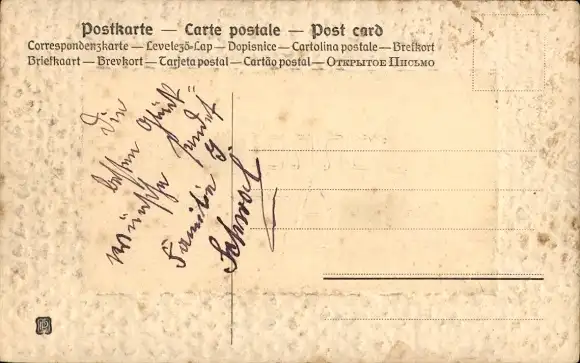 Postkarte — Carte postale — Post card
Correspondenzkarte — Levelezö-Lap — Dopisnice — Cartolina postale — Brefkort
Briefkaart — Brevkort — Tarjeta postal — Cartão postal — Открытое Письмо
Die
besten Glück
wünsche sendet
Familie